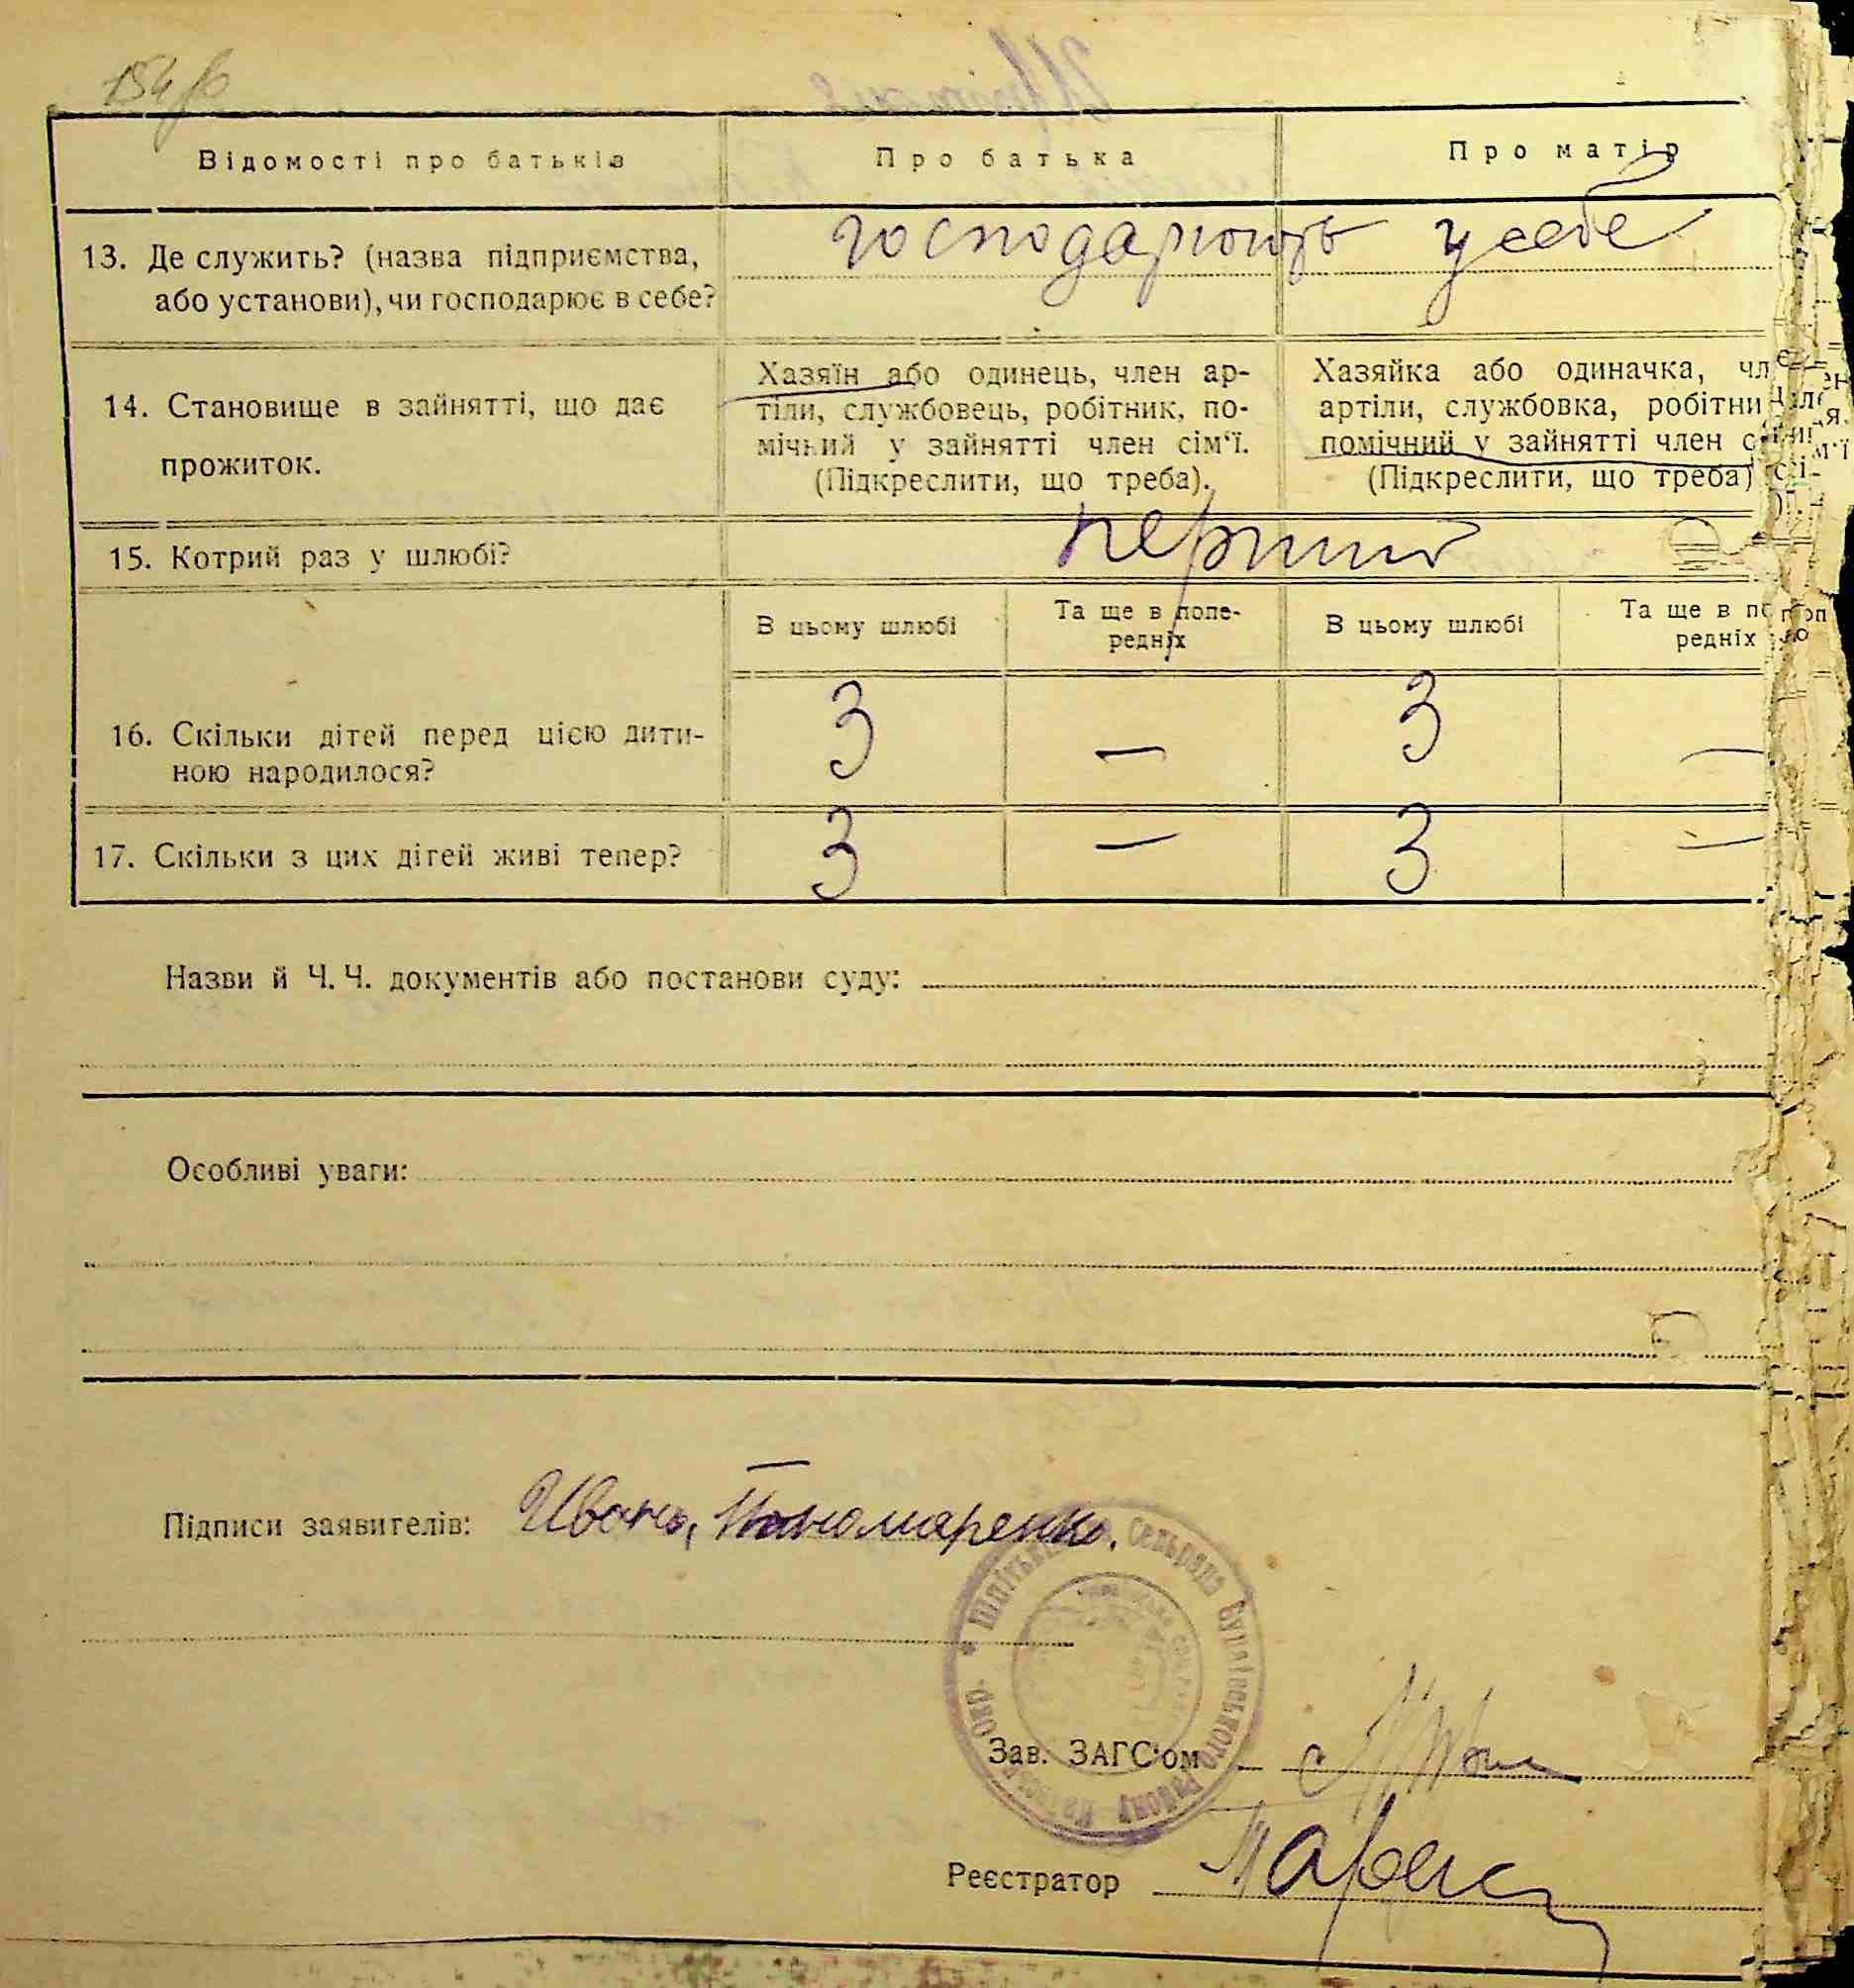 154 зв
Відомості про батьків
Про батька
Про матір
13. Де служить? (назва підприємства,
або установи), чи господарює в себе?
господарюють у себе
14. Становище в зайнятті, що дає
прожиток.
Хазяїн або одинець, член ар-
тіли, службовець, робітник, по-
мічний у зайнятті член сім'ї.
(Підкреслити, що треба).
Хазяйка або одиначка, чл
артіли, службовка, робітни
помічний у зайнятті член с
(Підкреслити, що треба)
15. Котрий раз у шлюбі?
перший
В цьому шлюбі
Та ще в попе-
редніх
В цьому шлюбі
Та ще в по
редніх
16. Скільки дітей перед цією дити-
ною народилося?
3 — 3 —
17. Скільки з цих дітей живі тепер?
3 — 3 —
Назви й Ч. Ч. документів або постанови суду:
Особливі уваги:
Підписи заявителів: Иванъ, Пономаренко.
сельрада
району
Зав. ЗАГС'ом
Реєстратор